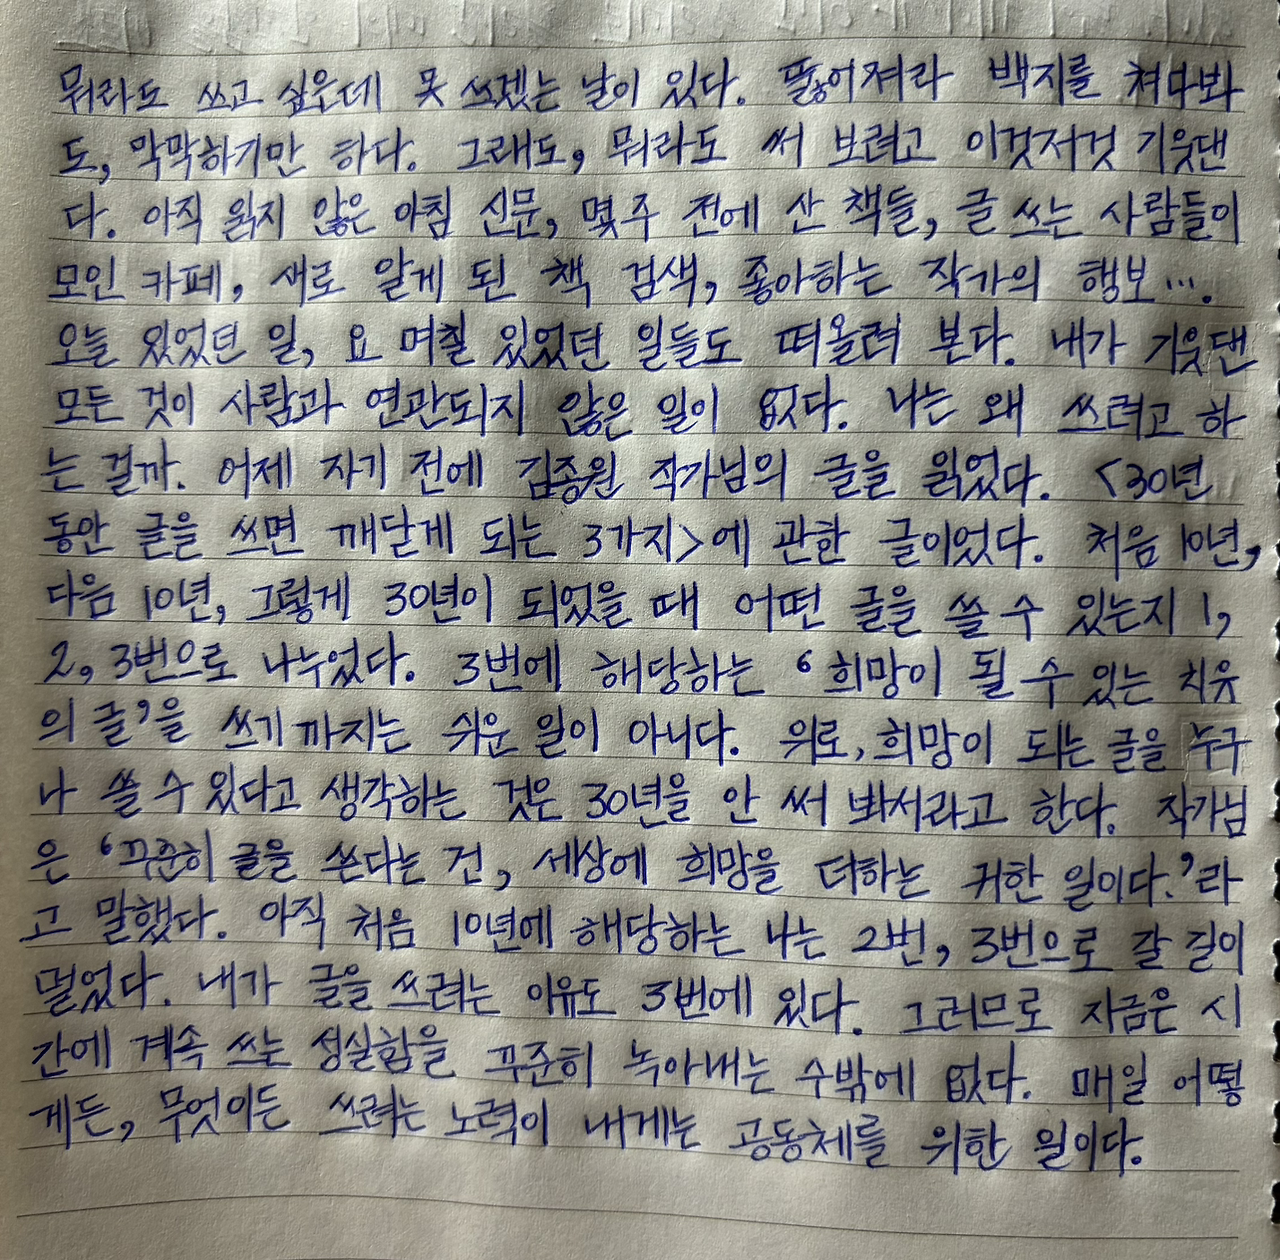 뭐라도 쓰고 싶은데 못 쓰겠는 날이 있다. 뚫어져라 백지를 쳐다봐
도, 막막하기만 하다. 그래도, 뭐라도 써 보려고 이것저것 기웃댄
다. 아직 읽지 않은 아침 신문, 몇 주 전에 산 책들, 글 쓰는 사람들이
모인 카페, 새로 알게 된 책 검색, 좋아하는 작가의 행보….
오늘 있었던 일, 요 며칠 있었던 일들도 떠올려 본다. 내가 기웃댄
모든 것이 사람과 연관되지 않은 일이 없다. 나는 왜 쓰려고 하
는 걸까. 어제 자기 전에 김종원 작가님의 글을 읽었다. <30년
동안 글을 쓰면 깨닫게 되는 3가지>에 관한 글이었다. 처음 10년,
다음 10년, 그렇게 30년이 되었을 때 어떤 글을 쓸 수 있는지 1,
2, 3번으로 나누었다. 3번에 해당하는 ‘희망이 될 수 있는 치유
의 글’을 쓰기까지는 쉬운 일이 아니다. 위로, 희망이 되는 글을 누구
나 쓸 수 있다고 생각하는 것은 30년을 안 써 봐서라고 한다. 작가님
은 ‘꾸준히 글을 쓴다는 건, 세상에 희망을 더하는 귀한 일이다.’라
고 말했다. 아직 처음 10년에 해당하는 나는 2번, 3번으로 갈 길이
멀었다. 내가 글을 쓰려는 이유도 3번에 있다. 그러므로 지금은 시
간에 계속 쓰는 성실함을 꾸준히 녹아내는 수밖에 없다. 매일 어떻
게든, 무엇이든 쓰려는 노력이 내게는 공동체를 위한 일이다.